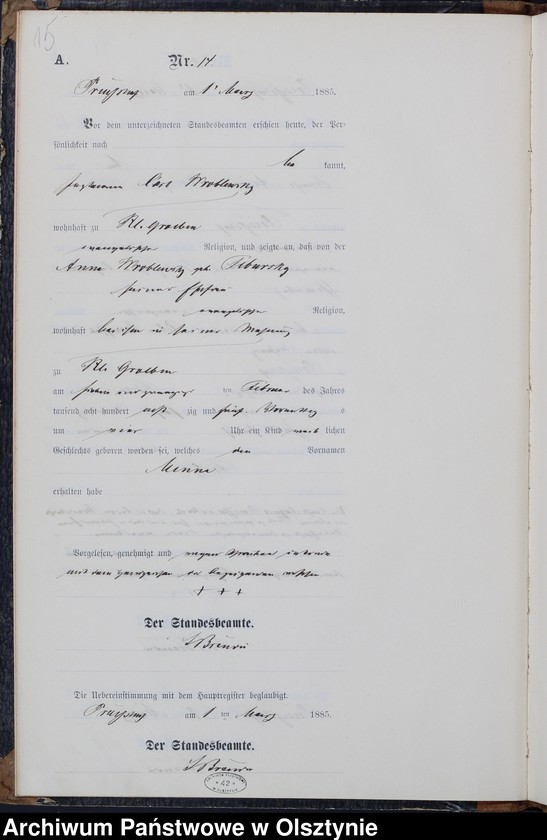 15
A. Nr. 14
am 1 März 1885.
Vor dem unterzeichneten Standesbeamten erschien heute, der Per-
sönlichkeit nach
be kannt,
Carl Wroblewsky
wohnhaft zu Kl. Grieben
evangelischer Religion, und zeigte an, daß von der
Anna Wroblewsky geb.
seiner Ehefrau
evangelischer Religion,
wohnhaft bei ihm in seiner Wohnung
zu Kl. Grieben
am sieben und zwanzigsten ten Februar des Jahres
tausend acht hundert acht zig und fünf Vormittags
um vier Uhr ein Kind weib lichen
Geschlechts geboren worden sei, welches den Vornamen
Minna
erhalten habe
Vorgelesen, genehmigt und wegen
mit dem Handzeichen versehen
+ + +
Der Standesbeamte.
Die Uebereinstimmung mit dem Hauptregister beglaubigt.
am 1 ten März 1885.
Der Standesbeamte.
42
Archiwum Państwowe w Olsztynie